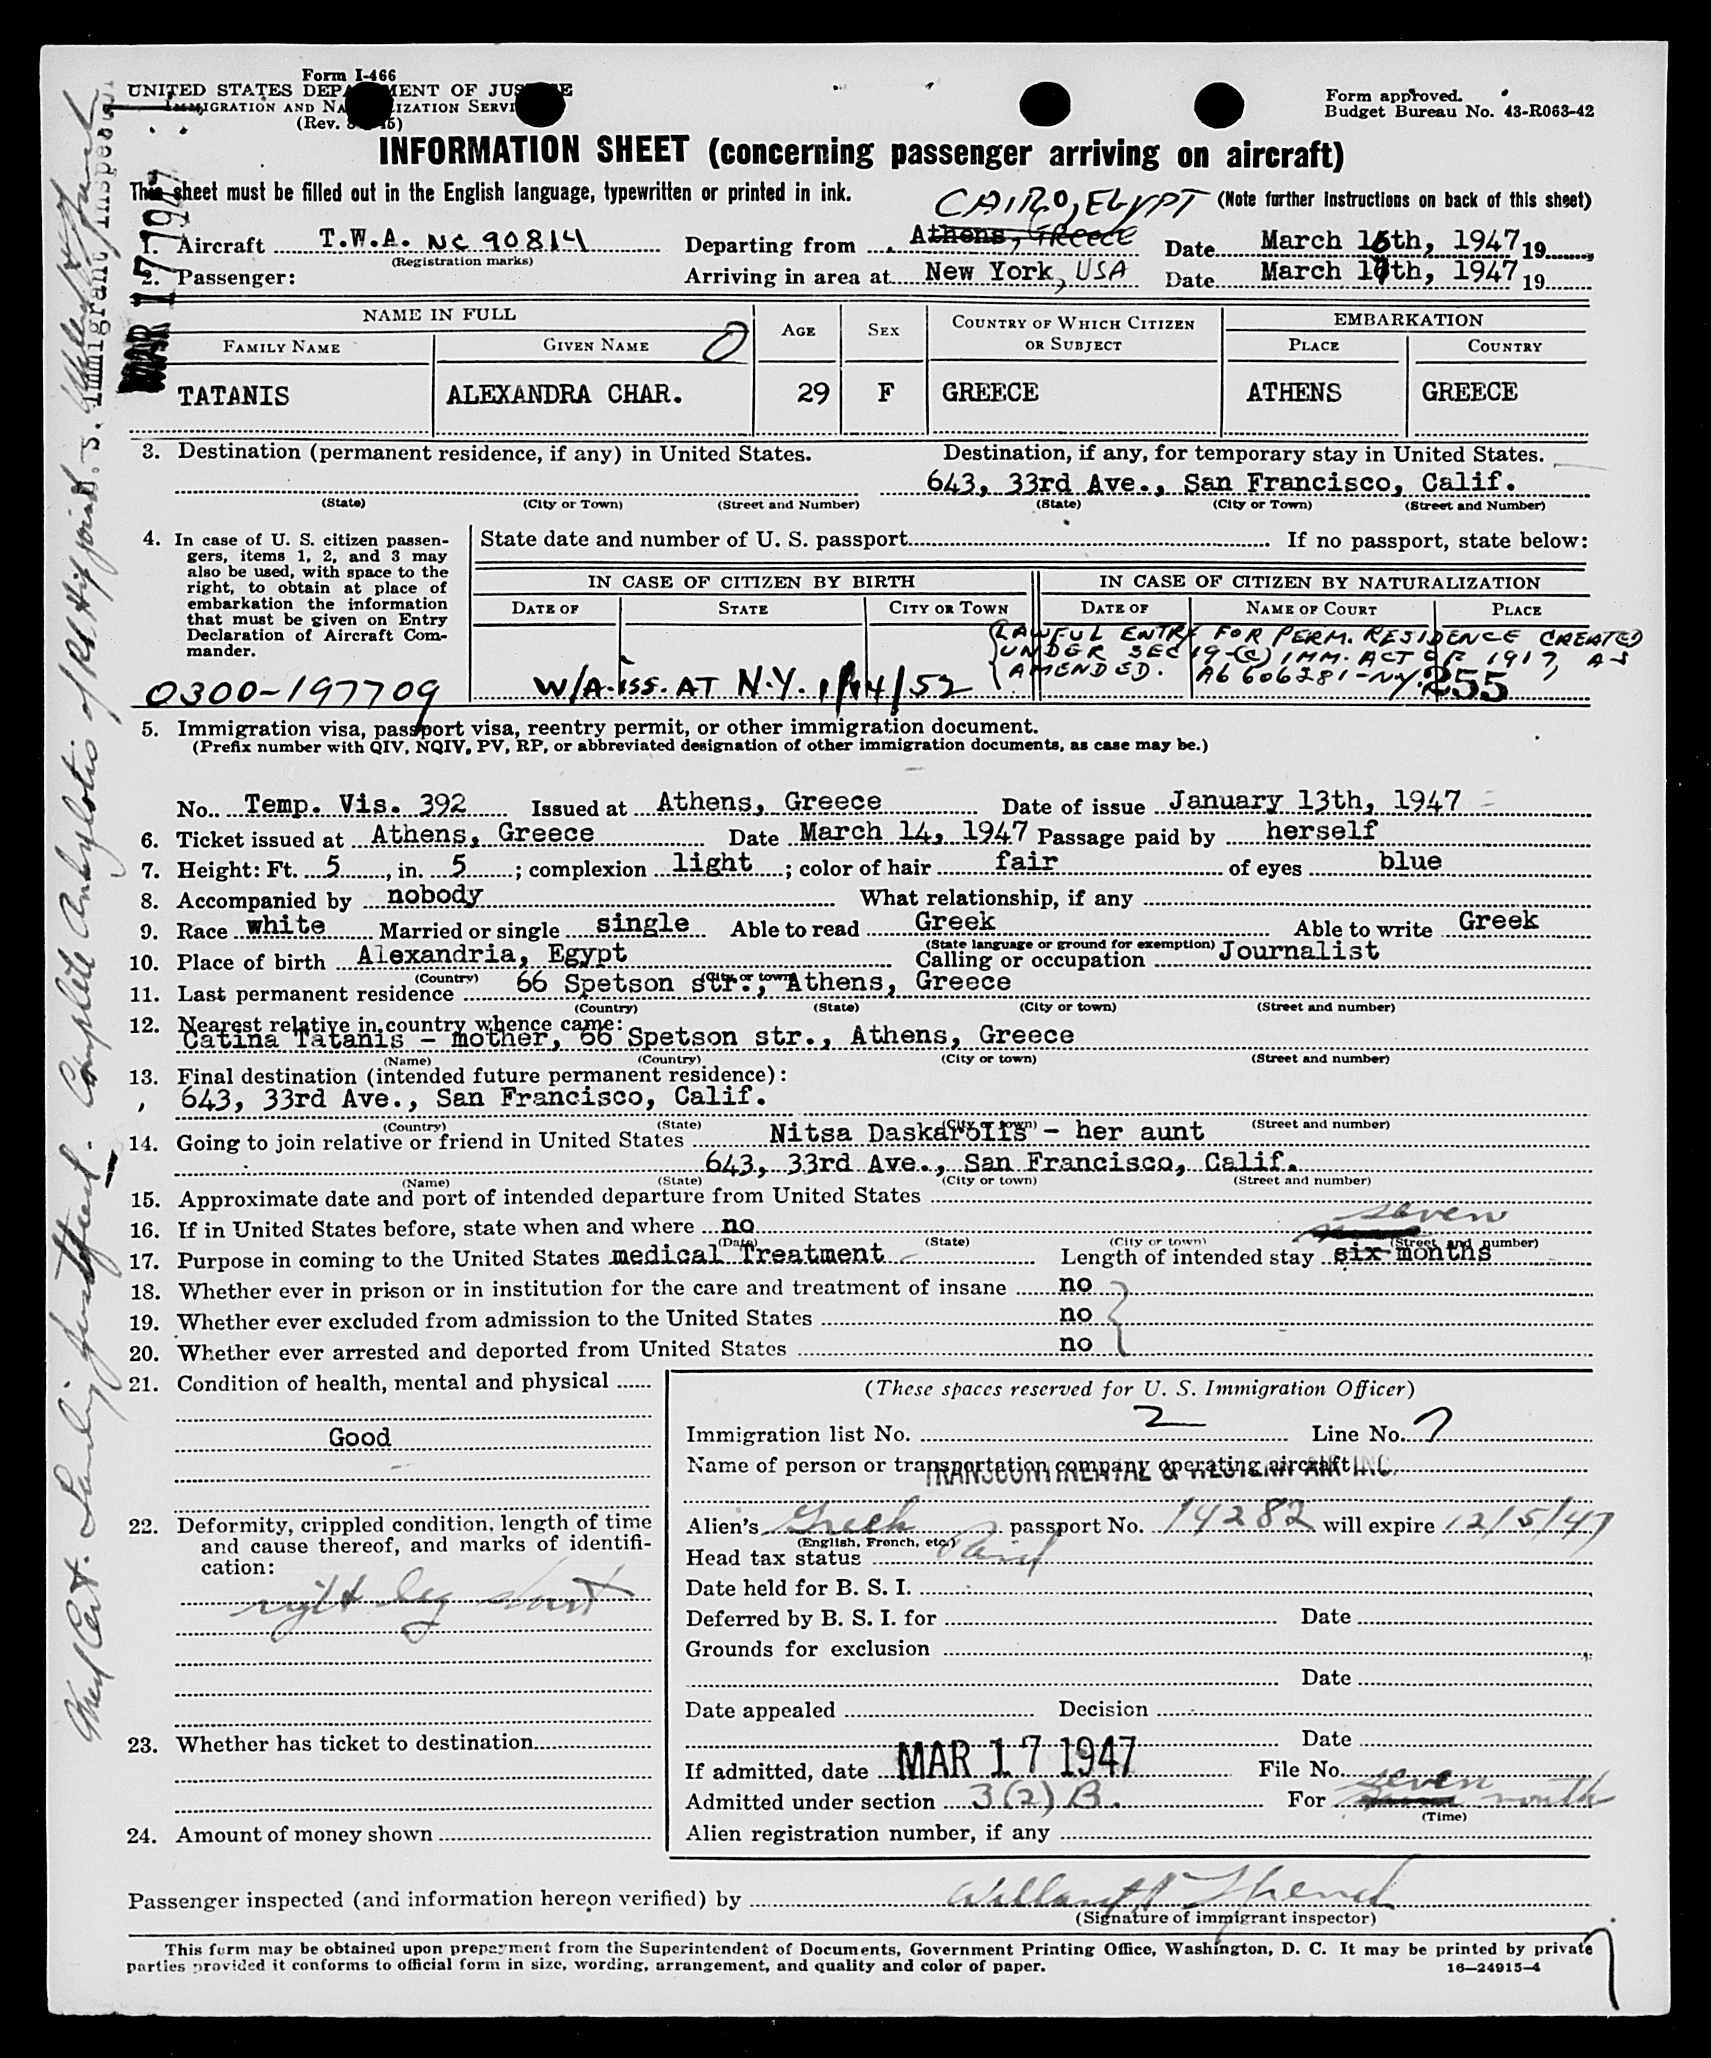 Form I-466
UNITED STATES DEPARTMENT OF JUSTICE
IMMIGRATION AND NATURALIZATION SERVICE
(Rev.
Form approved.
Budget Bureau No. 43-R063-42
INFORMATION SHEET (concerning passenger arriving on aircraft)
This sheet must be filled out in the English language, typewritten or printed in ink.
(Note further instructions on back of this sheet)
CAIRO, EGYPT
1. Aircraft T.W.A. NC 90814 Departing from Athens, GREECE Date March 16th, 1947 19
(Registration marks)
2. Passenger: Arriving in area at New York, USA Date March 17th, 1947 19
NAME IN FULL AGE SEX COUNTRY OF WHICH CITIZEN OR SUBJECT EMBARKATION
FAMILY NAME GIVEN NAME PLACE COUNTRY
TATANIS ALEXANDRA CHAR. 29 F GREECE ATHENS GREECE
3. Destination (permanent residence, if any) in United States. Destination, if any, for temporary stay in United States.
643, 33rd Ave., San Francisco, Calif.
(State) (City or Town) (Street and Number) (State) (City or Town) (Street and Number)
4. In case of U. S. citizen passen-
gers, items 1, 2, and 3 may
also be used, with space to the
right, to obtain at place of
embarkation the information
that must be given on Entry
Declaration of Aircraft Com-
mander.
State date and number of U. S. passport If no passport, state below:
IN CASE OF CITIZEN BY BIRTH IN CASE OF CITIZEN BY NATURALIZATION
DATE OF STATE CITY OR TOWN DATE OF NAME OF COURT PLACE
LAWFUL ENTRY FOR PERM. RESIDENCE CREATED
UNDER SEC 19-(C) IMM. ACT OF 1917, AS
AMENDED. A6 606281-N.Y. 255
0300-197709 W/A. iss. AT N.Y. 1/14/52
5. Immigration visa, passport visa, reentry permit, or other immigration document.
(Prefix number with QIV, NQIV, PV, RP, or abbreviated designation of other immigration documents, as case may be.)
No. Temp. Vis. 392 Issued at Athens, Greece Date of issue January 13th, 1947
6. Ticket issued at Athens, Greece Date March 14, 1947 Passage paid by herself
7. Height: Ft. 5, in. 5; complexion light; color of hair fair of eyes blue
8. Accompanied by nobody What relationship, if any
9. Race white Married or single single Able to read Greek Able to write Greek
(State language or ground for exemption)
10. Place of birth Alexandria, Egypt Calling or occupation Journalist
(Country) (City or town)
11. Last permanent residence 66 Spetson str., Athens, Greece
(Country) (State) (City or town) (Street and number)
12. Nearest relative in country whence came:
Catina Tatanis - mother, 66 Spetson str., Athens, Greece
(Name) (Country) (City or town) (Street and number)
13. Final destination (intended future permanent residence):
643, 33rd Ave., San Francisco, Calif.
(Country) (State) (City or town) (Street and number)
14. Going to join relative or friend in United States Nitsa Daskarolis - her aunt
643, 33rd Ave., San Francisco, Calif.
(Name) (State) (City or town) (Street and number)
15. Approximate date and port of intended departure from United States
16. If in United States before, state when and where no
(Date) (State) (City or town) (Street and number)
seven
17. Purpose in coming to the United States medical Treatment Length of intended stay six months
18. Whether ever in prison or in institution for the care and treatment of insane no
19. Whether ever excluded from admission to the United States no
20. Whether ever arrested and deported from United States no
21. Condition of health, mental and physical
Good
22. Deformity, crippled condition, length of time
and cause thereof, and marks of identifi-
cation:
right leg short
23. Whether has ticket to destination
24. Amount of money shown
(These spaces reserved for U. S. Immigration Officer)
Immigration list No. 2 Line No. 7
Name of person or transportation company operating aircraft
TRANSCONTINENTAL & WESTERN AIR INC.
Alien's Greek passport No. 14282 will expire 12/5/47
(English, French, etc.)
Head tax status Paid
Date held for B. S. I.
Deferred by B. S. I. for Date
Grounds for exclusion
Date
Date appealed Decision
Date
If admitted, date MAR 17 1947 File No.
seven
Admitted under section 3(2) B. For month
(Time)
Alien registration number, if any
Passenger inspected (and information hereon verified) by
(Signature of immigrant inspector)
This form may be obtained upon prepayment from the Superintendent of Documents, Government Printing Office, Washington, D. C. It may be printed by private
parties provided it conforms to official form in size, wording, arrangement, and quality and color of paper.
16—24915-4
Med Cert. Complete Ankylotis of Rt Hip joint.
MAR 17 1947
U. S. Immigrant Inspector